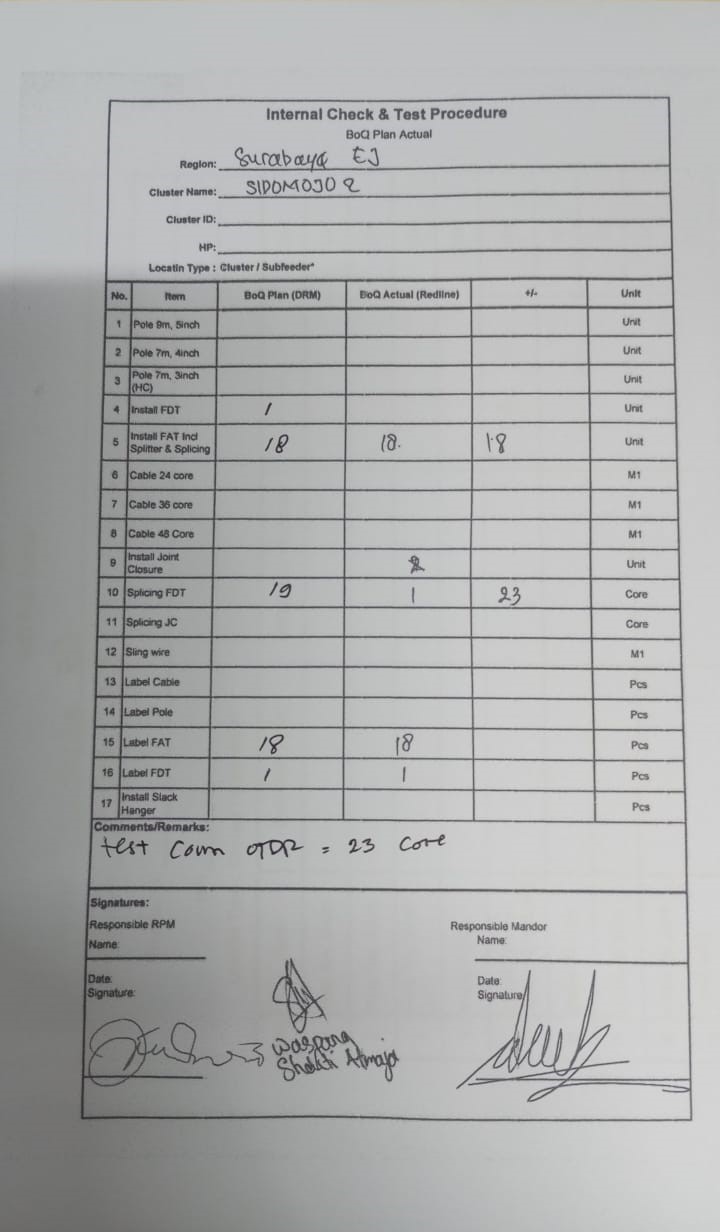 Internal Check & Test Procedure
BoQ Plan Actual
Region: Surabaya EJ
Cluster Name: SIDOMOJO 2
Cluster ID:
HP:
Locatin Type : Cluster / Subfeeder*
No. Item BoQ Plan (DRM) BoQ Actual (Redline) +/- Unit
1 Pole 9m, 5inch Unit
2 Pole 7m, 4inch Unit
3 Pole 7m, 3inch (HC) Unit
4 Install FDT 1 Unit
5 Install FAT Incl Splitter & Splicing 18 18. 18 Unit
6 Cable 24 core M1
7 Cable 36 core M1
8 Cable 48 Core M1
9 Install Joint Closure Unit
10 Splicing FDT 19 1 23 Core
11 Splicing JC Core
12 Sling wire M1
13 Label Cable Pcs
14 Label Pole Pcs
15 Label FAT 18 18 Pcs
16 Label FDT 1 1 Pcs
17 Install Slack Hanger Pcs
Comments/Remarks:
test Coum OTDR = 23 Core
Signatures:
Responsible RPM Responsible Mandor
Name: Name:
Date: Date:
Signature: Signature:
Waspang
Shakti Atmaja